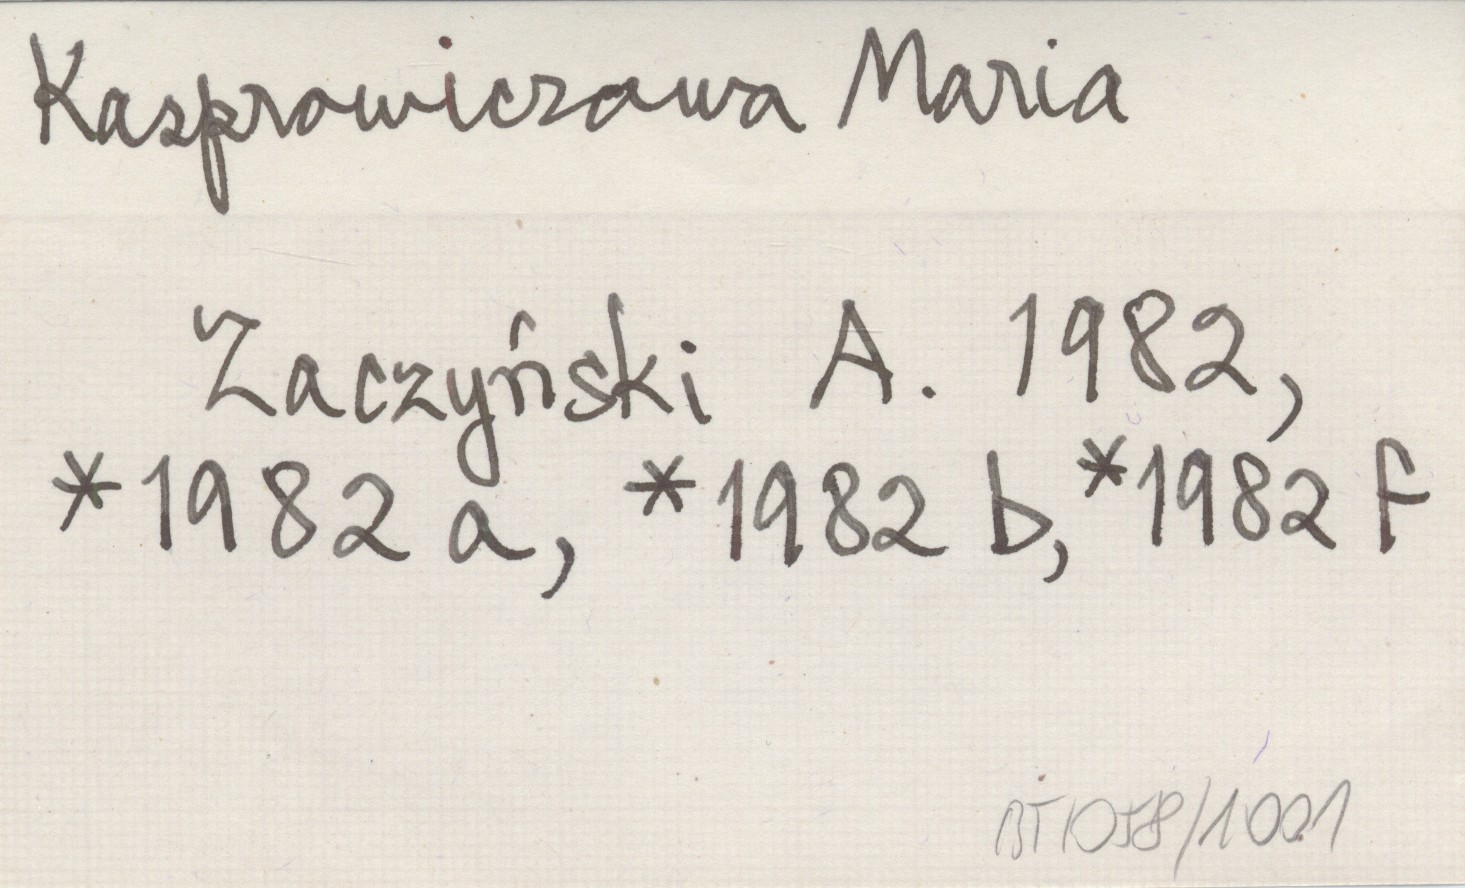 Kasprowiczowa Maria
Zaczyński A. 1982,
*1982 a, *1982 b, *1982 f
BT/058/1001